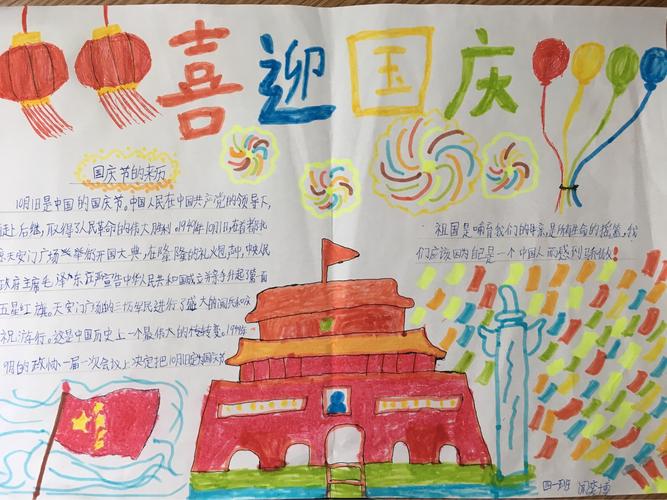 喜迎国庆
国庆节的来历
10月1日是中国的国庆节。中国人民在中国共产党的领导下,
赴后继,取得了人民革命的伟大胜利。1949年10月1日,在首都北
京天安门广场举行开国大典,在隆隆的礼火包声中,中央人民
政府主席毛泽东庄严宣告中华人民共和国成立并亲手升起第一面
五星红旗。天安门广场的三十万军民进行了盛大的阅兵和庆
祝游行。这是中国历史上一个最伟大的转变。1949年
明的政协一届一次会议上决定把10月1日定为国庆节
祖国是哺育我们的母亲,是所有生命的摇篮,我
们应该因为自己是一个中国人而感到骄傲!
四一班